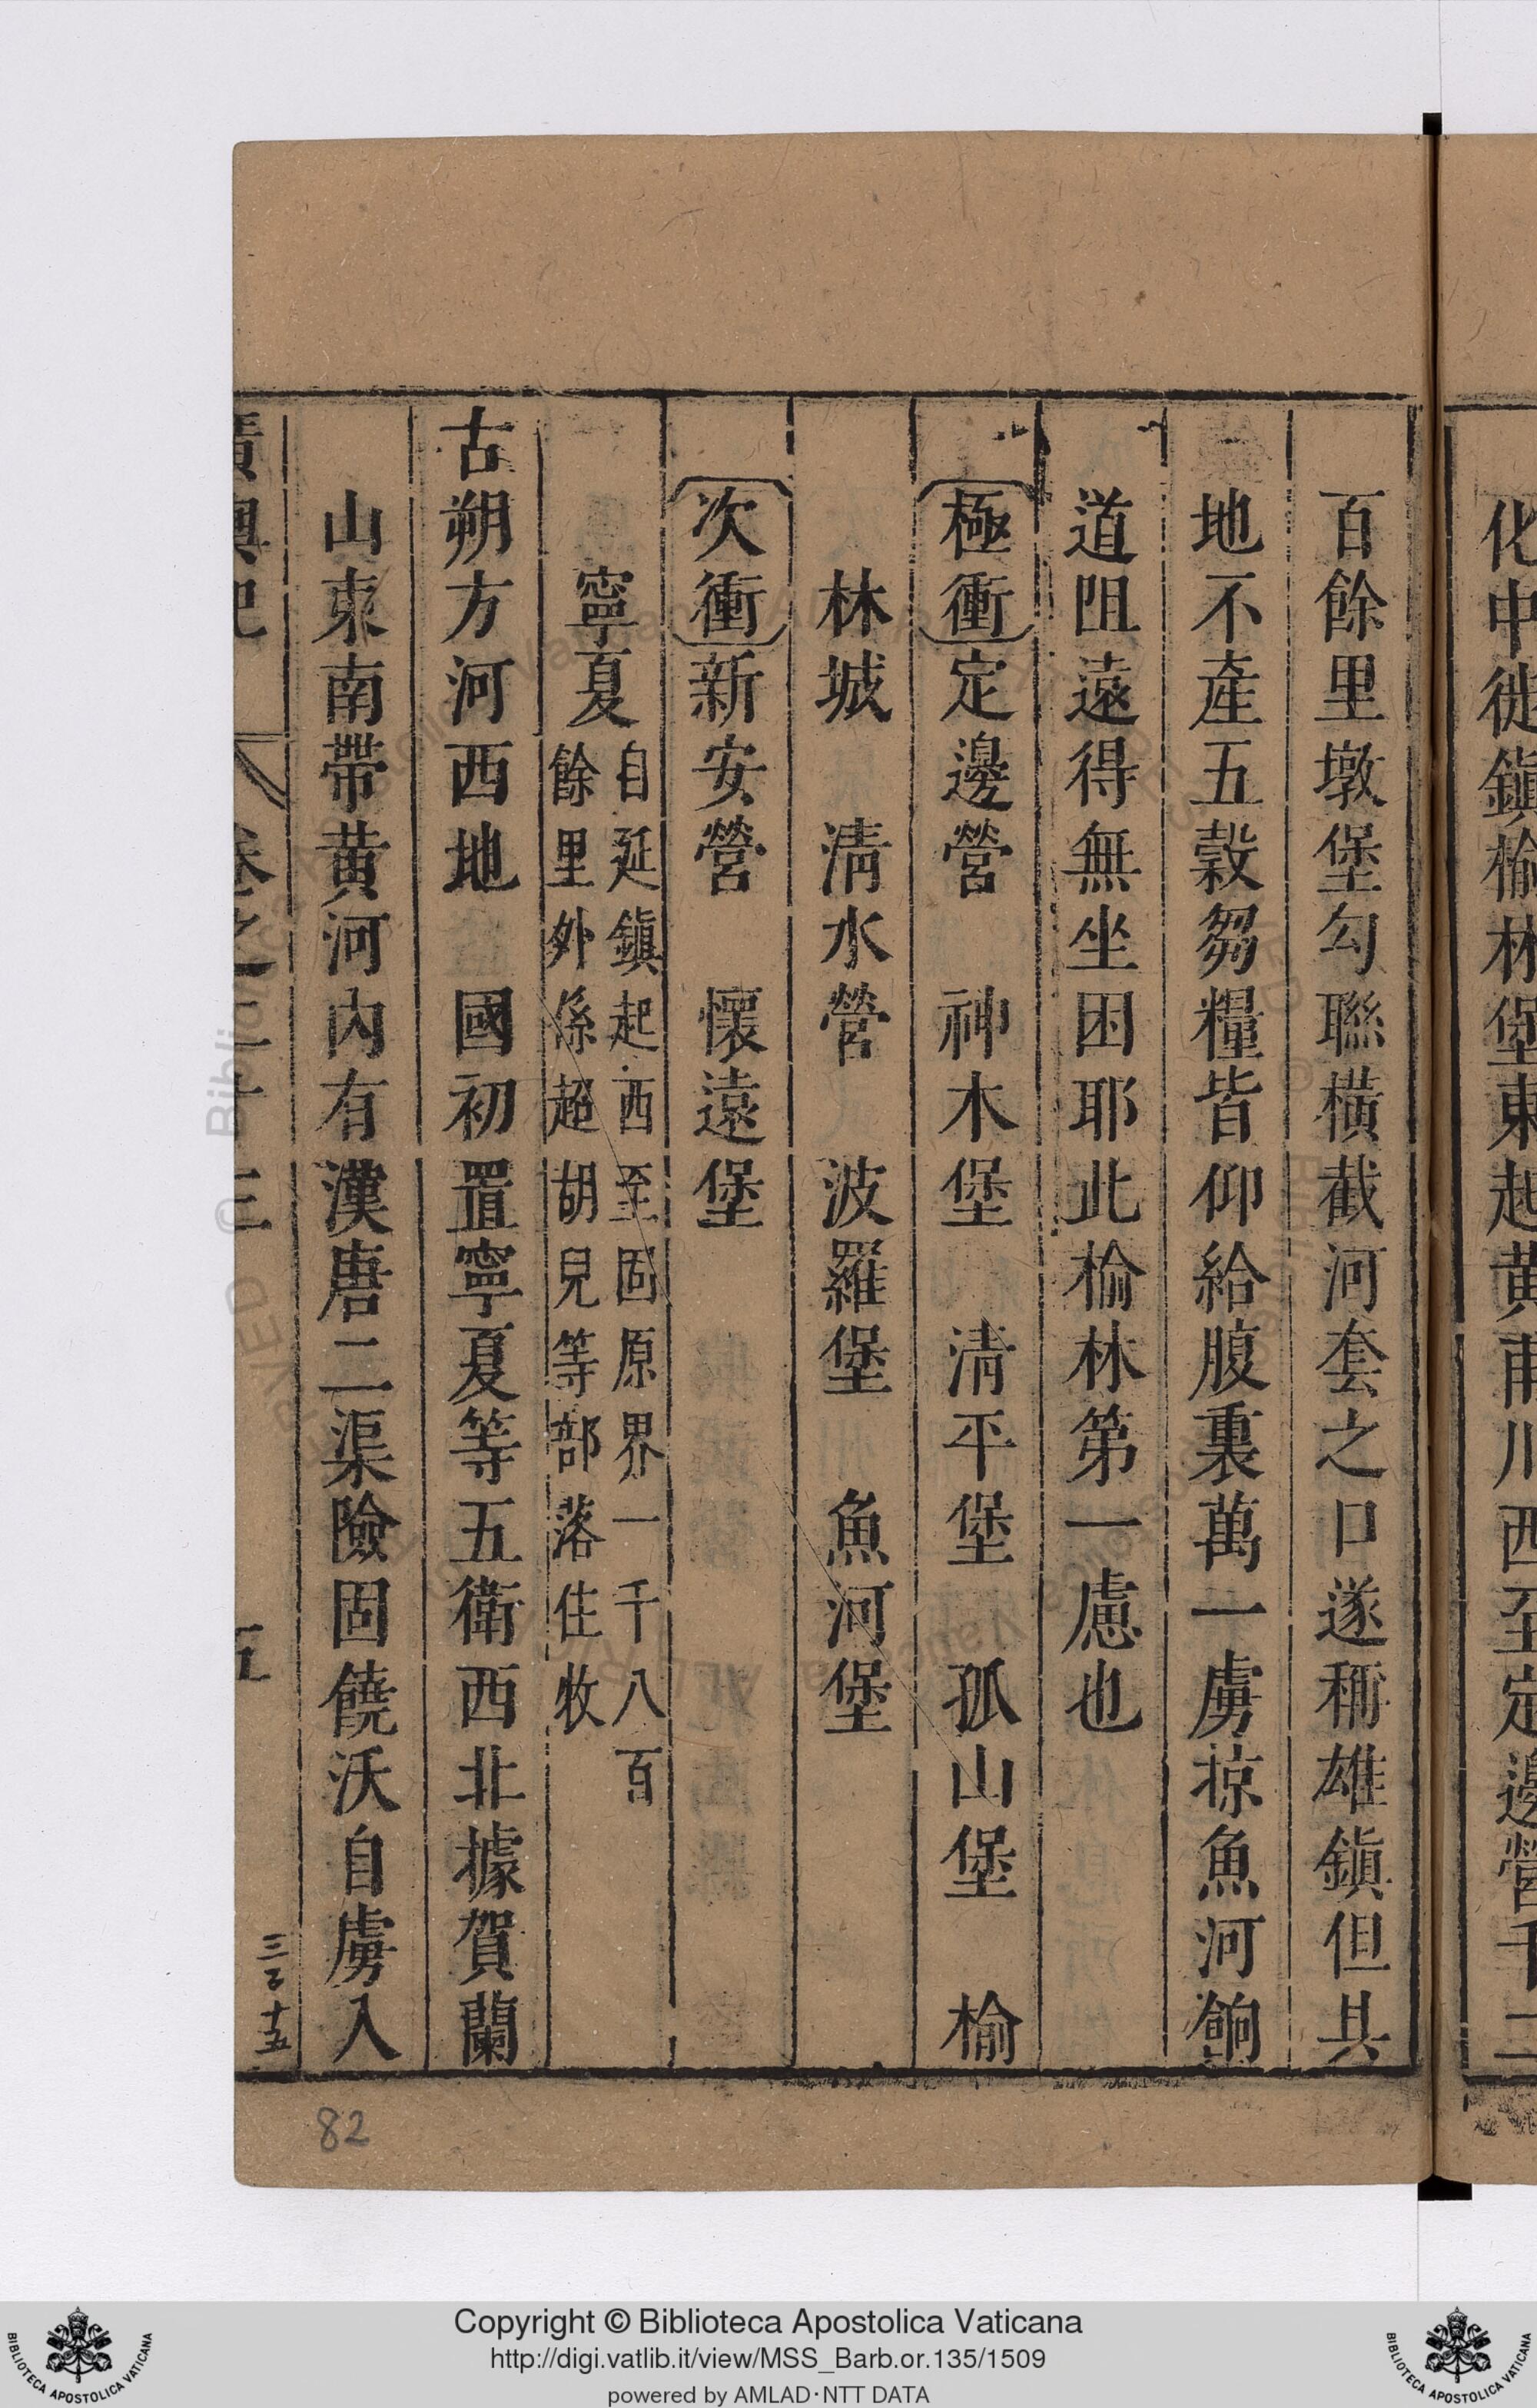 化中徙鎮榆林堡東起黄甫川西至定邊營千二
百餘里墩堡勾聯橫截河套之口遂稱雄鎮但其
地不產五榖芻糧皆仰給腹裏萬一虜掠魚河餉
道阻遠得無坐困耶此榆林第一慮也
極衝定邊營 神木堡 清平堡 孤山堡 榆
林城 清水營 波羅堡 魚河堡
次衝新安營 懷遠堡
寧夏
自延鎮起西至固原界一千八百
餘里外係超胡兒等部落住牧
古朔方河西地 國初置寧夏等五衛西北據賀蘭
山東南帶黄河內有漢唐二渠險固饒沃自虜入
廣輿記 卷之二十三 五
82
Copyright © Biblioteca Apostolica Vaticana
http://digi.vatlib.it/view/MSS_Barb.or.135/1509
powered by AMLAD·NTT DATA
BIBLIOTECA APOSTOLICA VATICANA
BIBLIOTECA APOSTOLICA VATICANA